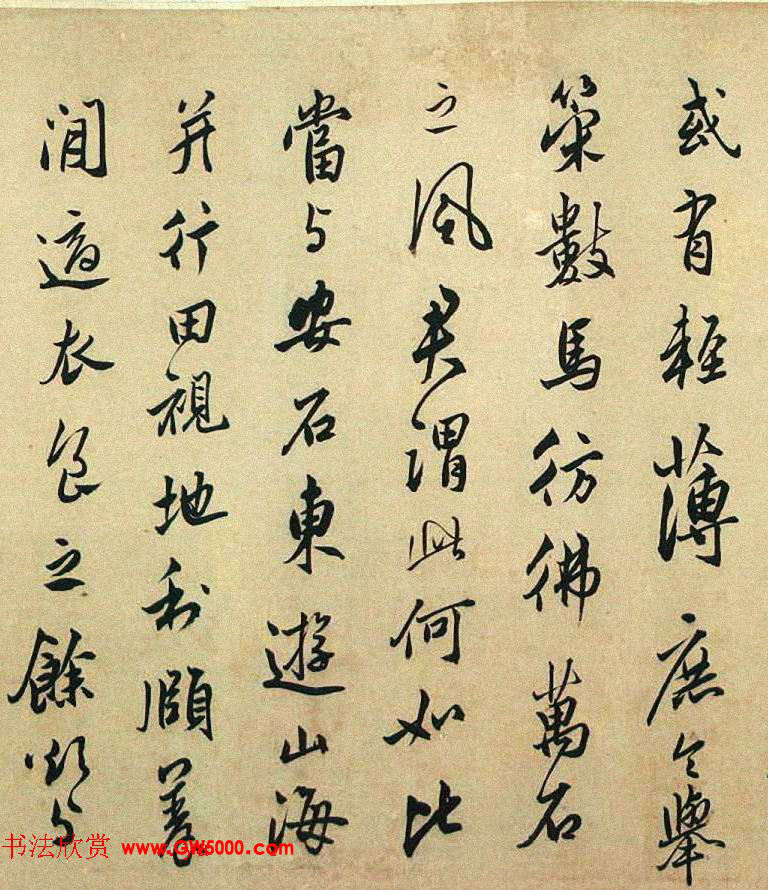 或有輕薄庶令舉
策數馬彷彿萬石
之風君謂此何如比
當与安石東遊山海
并行田視地利頤養
閒適衣食之餘欲与
书法欣赏 www.GW5000.com